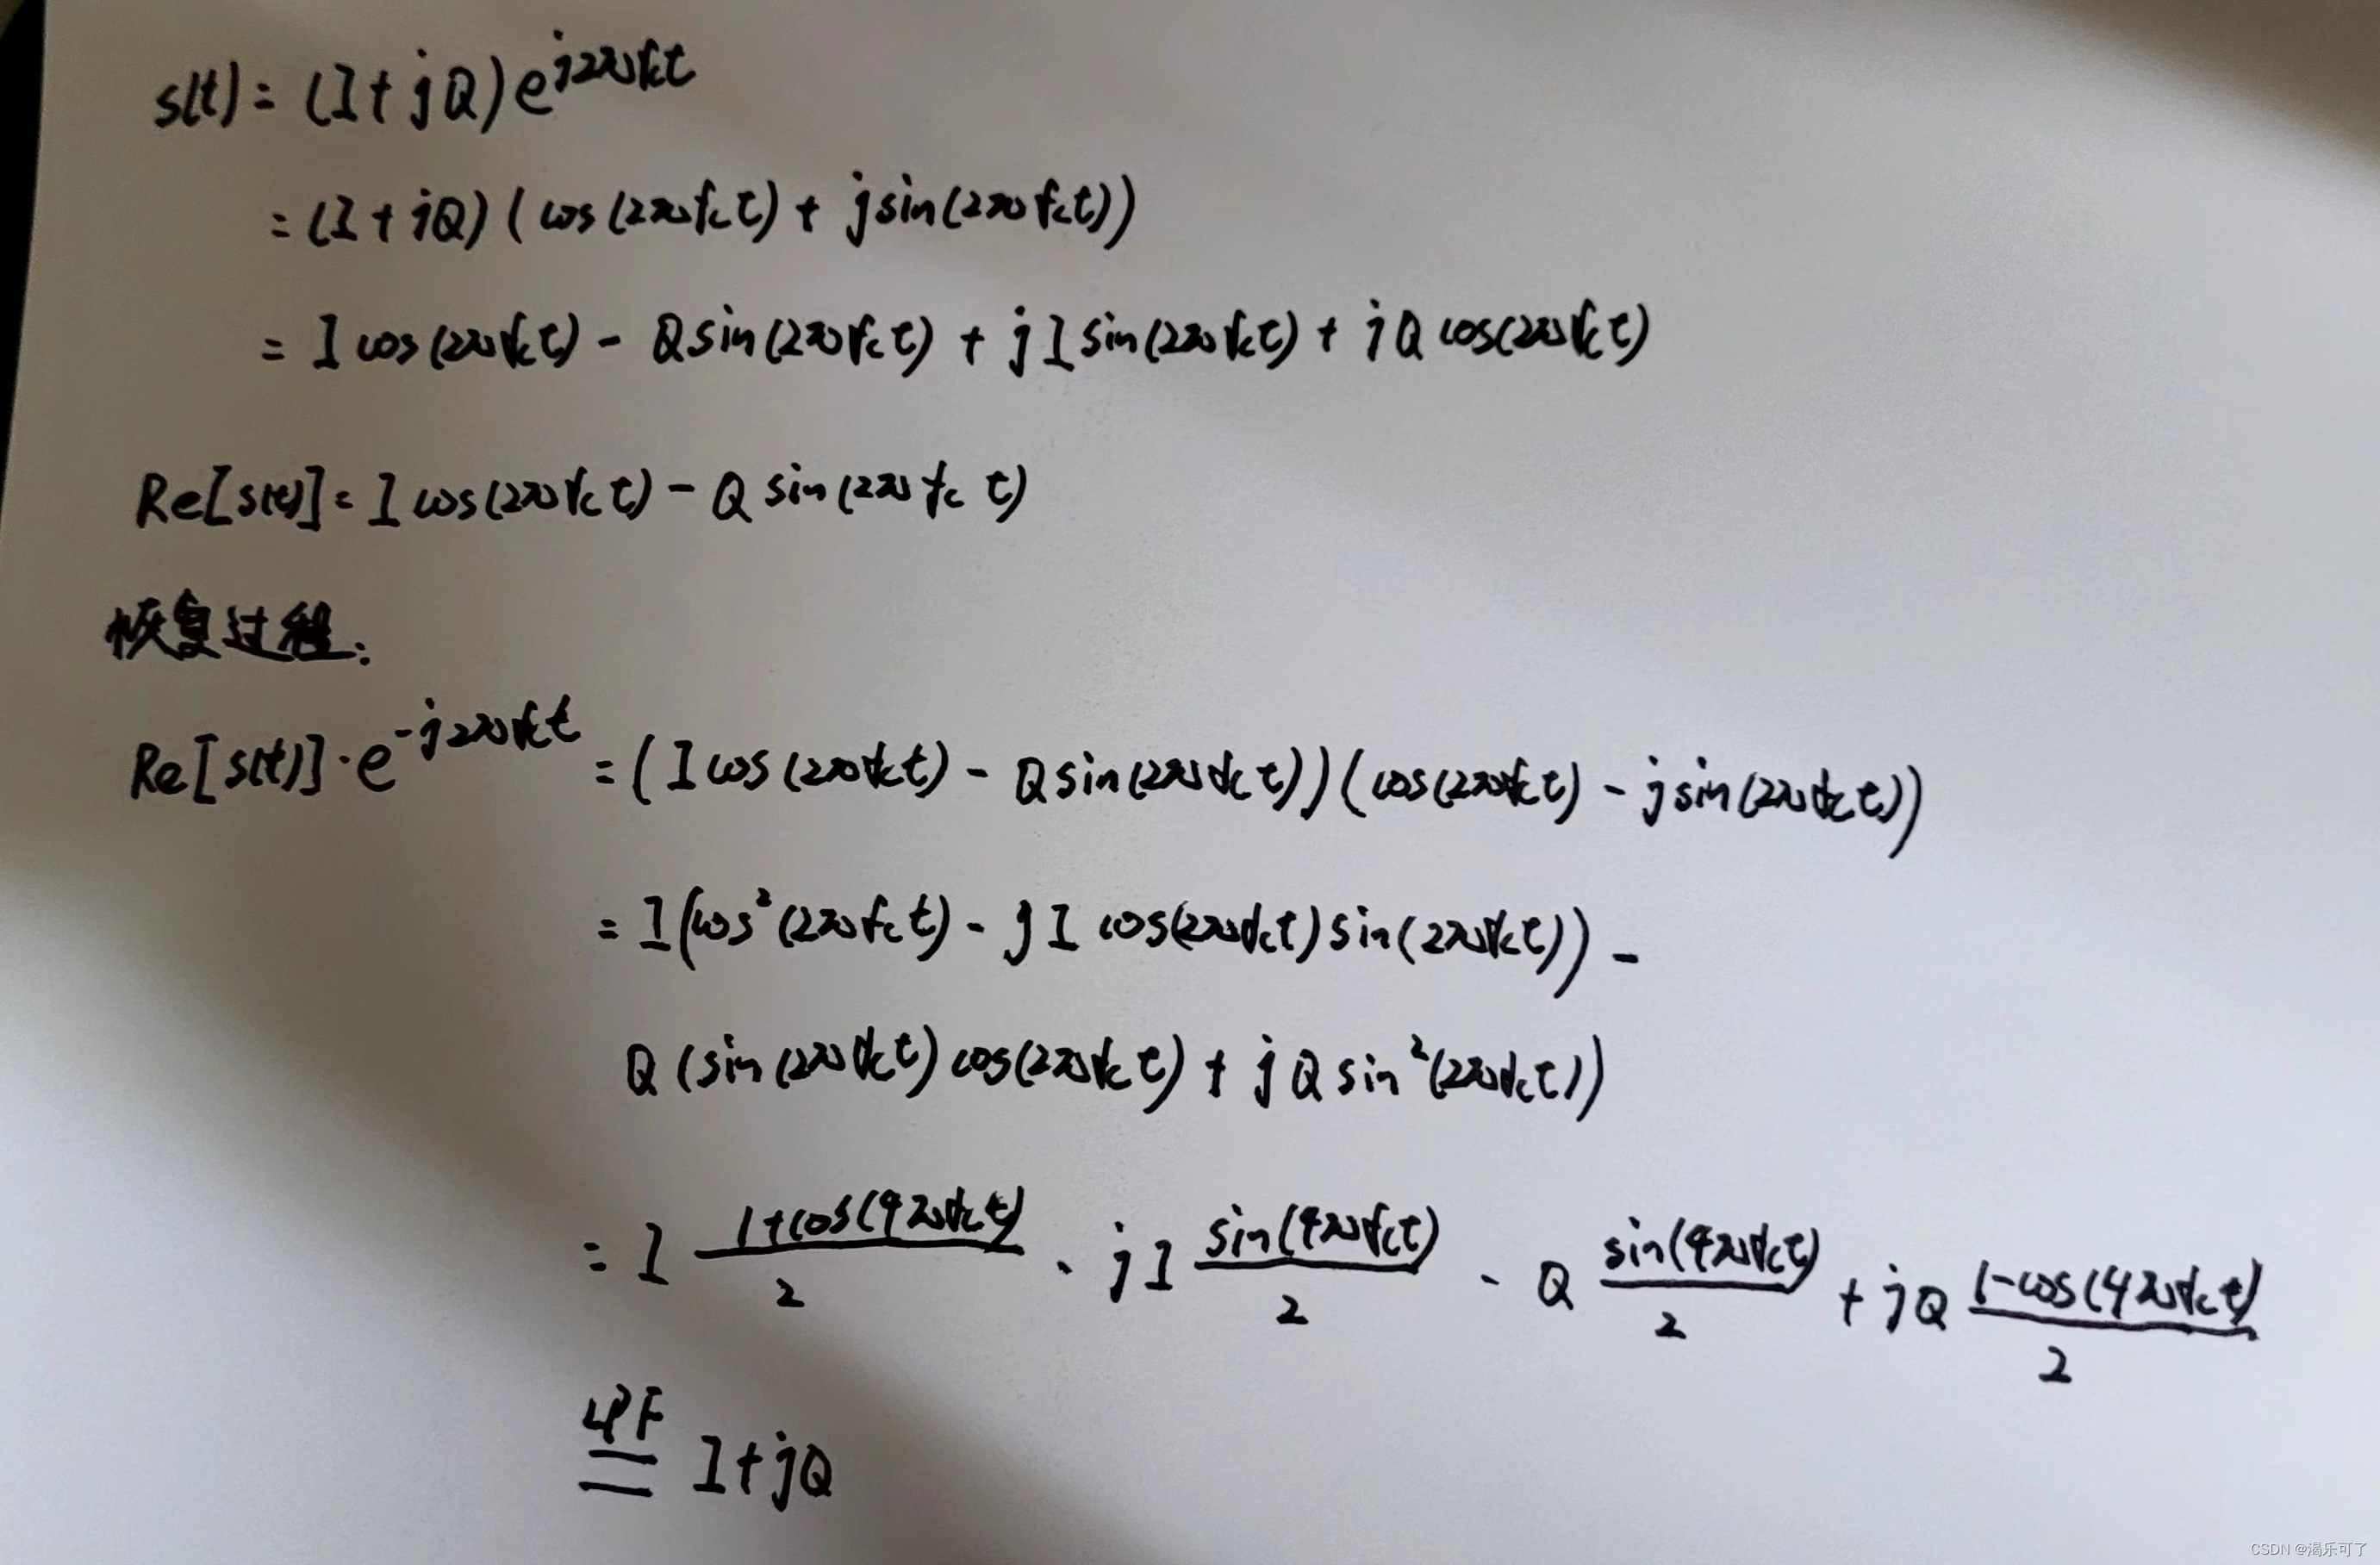 s(t) = (I + jQ) e^{j2πf_ct}
= (I + jQ) (cos(2πf_ct) + jsin(2πf_ct))
= I cos(2πf_ct) - Qsin(2πf_ct) + jIsin(2πf_ct) + jQ cos(2πf_ct)
Re[s(t)] = I cos(2πf_ct) - Q sin(2πf_ct)
恢复过程:
Re[s(t)]·e^{-j2πf_ct} = (I cos(2πf_ct) - Qsin(2πf_ct))(cos(2πf_ct) - jsin(2πf_ct))
= I(cos²(2πf_ct) - jI cos(2πf_ct)sin(2πf_ct)) -
Q(sin(2πf_ct)cos(2πf_ct) + jQsin²(2πf_ct))
= I \frac{1+cos(4πf_ct)}{2} - jI \frac{sin(4πf_ct)}{2} - Q \frac{sin(4πf_ct)}{2} + jQ \frac{1-cos(4πf_ct)}{2}
\overset{LPF}{=} I+jQ
CSDN @渴乐可了